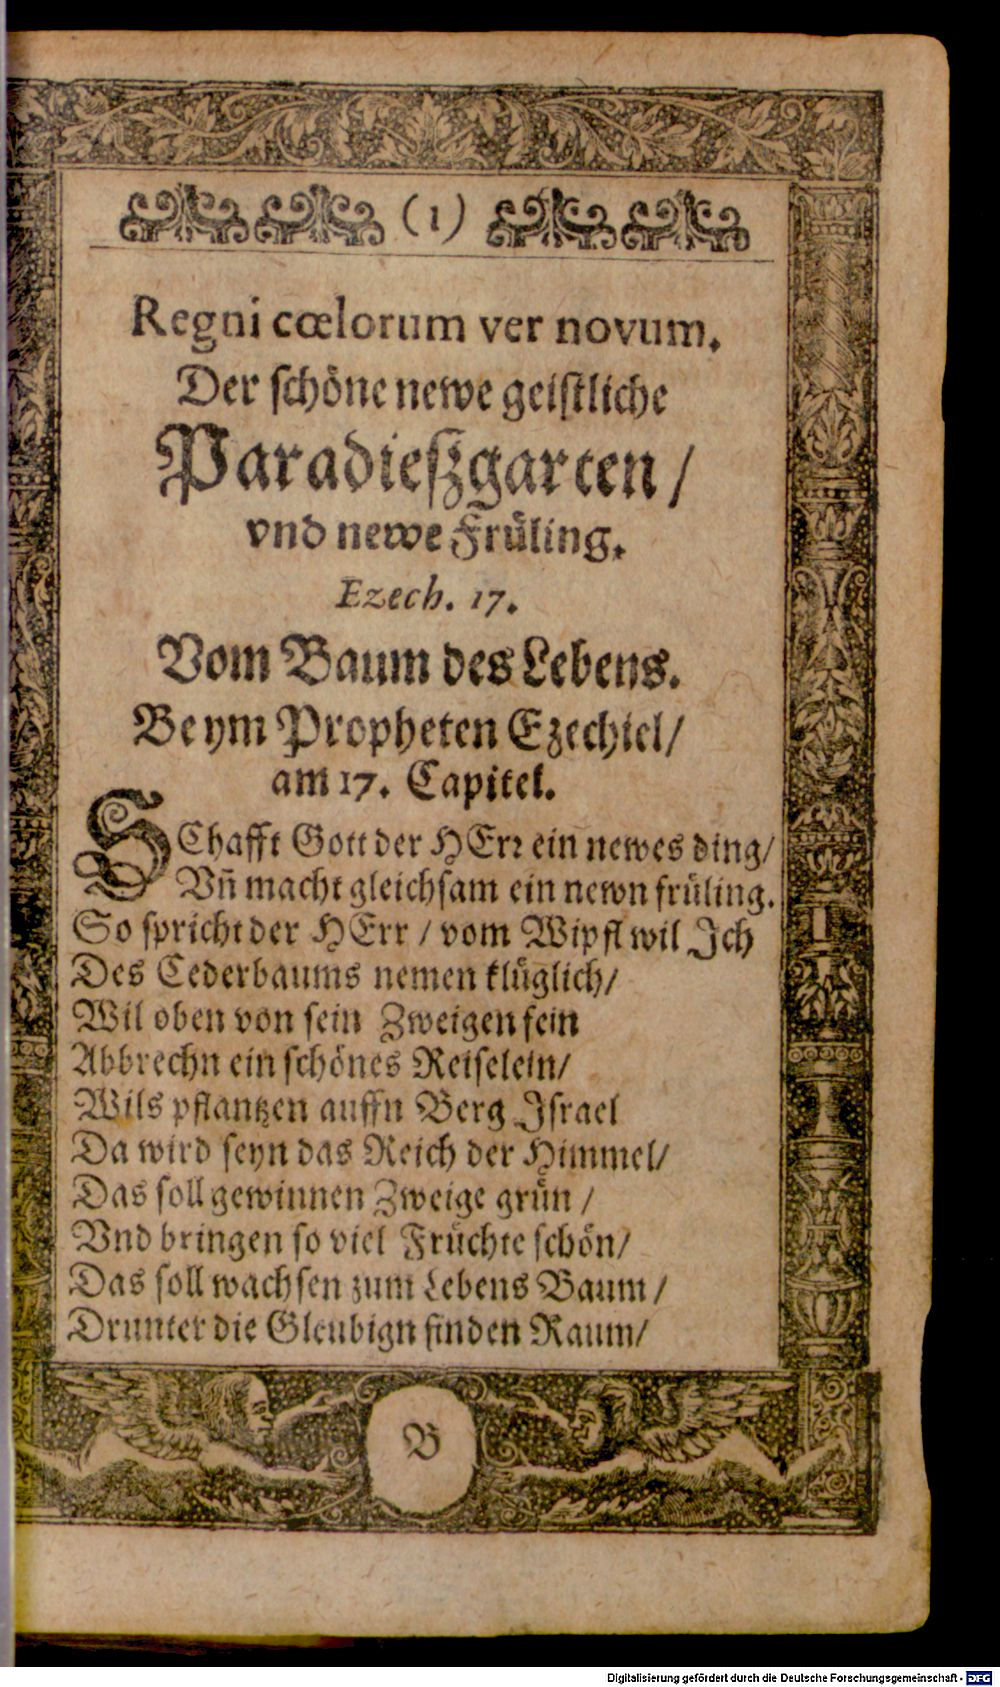 (1)
Regni cœlorum ver novum.
Der schöne newe geistliche
Paradießgarten /
vnd newe Früling.
Ezech. 17.
Vom Baum des Lebens.
Beym Propheten Ezechiel /
am 17. Capitel.
SChafft Gott der HErr ein newes ding /
Vñ macht gleichsam ein newn früling.
So spricht der HErr / vom Wipfl wil Ich
Des Cederbaums nemen klüglich /
Wil oben von sein Zweigen fein
Abbrechn ein schönes Reiselein /
Wils pflantzen auffn Berg Israel
Da wird seyn das Reich der Himmel /
Das soll gewinnen Zweige grün /
Vnd bringen so viel Früchte schön /
Das soll wachsen zum Lebens Baum /
Drunter die Gleubign finden Raum /
B
Digitalisierung gefördert durch die Deutsche Forschungsgemeinschaft - DFG